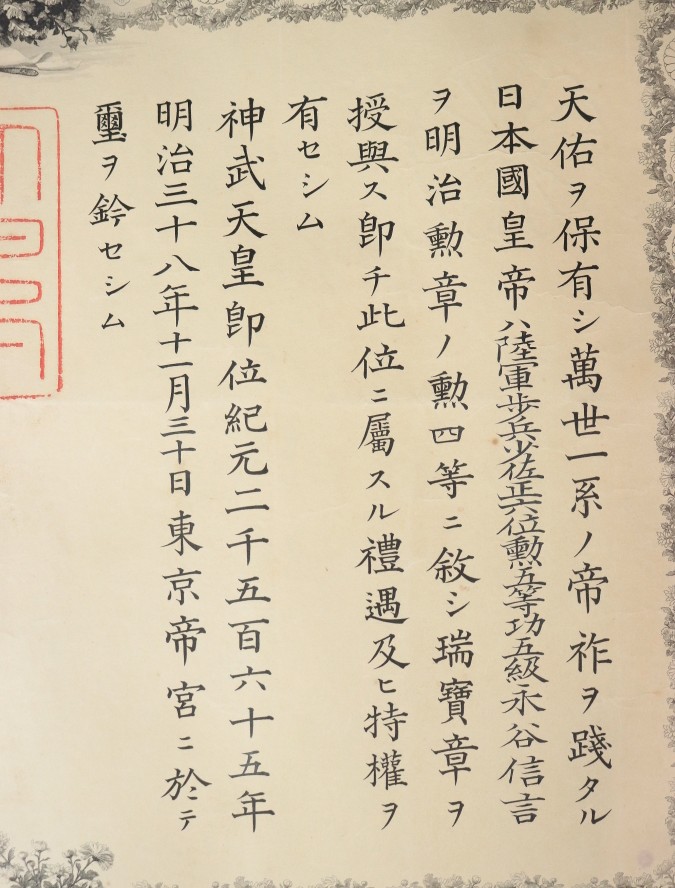 天佑ヲ保有シ萬世一系ノ帝祚ヲ踐タル
日本國皇帝ハ陸軍歩兵少佐正六位勲五等功五級永谷信言
ヲ明治勲章ノ勲四等ニ敘シ瑞寶章ヲ
授與ス卽チ此位ニ屬スル禮遇及ヒ特權ヲ
有セシム
神武天皇卽位紀元二千五百六十五年
明治三十八年十一月三十日東京帝宮ニ於テ
璽ヲ鈐セシム